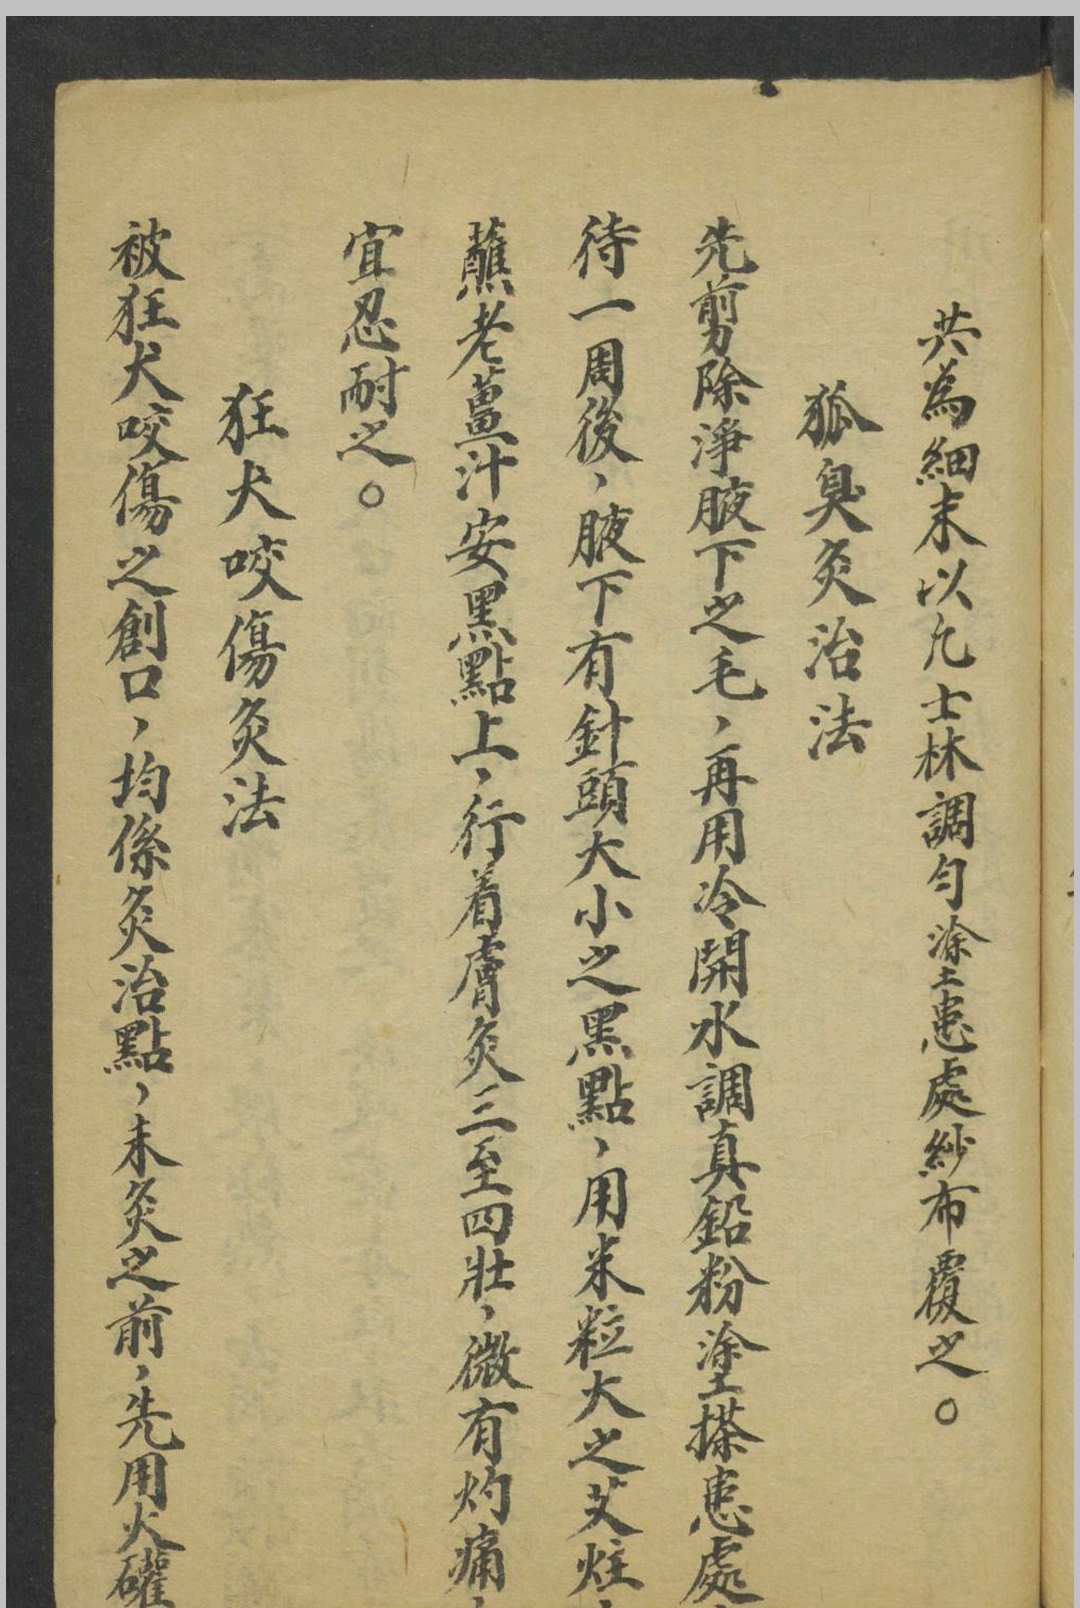 共為細末以凡士林調勻塗患處紗布覆之。
狐臭灸治法
先剪除淨腋下之毛，再用冷開水調真鉛粉塗搽患處，
待一周後，腋下有針頭大小之黑點，用米粒大之艾炷，
蘸老薑汁安黑點上，行着膚灸三至四壯，微有灼痛，
宜忍耐之。
狂犬咬傷灸法
被狂犬咬傷之創口，均係灸治點，未灸之前，先用火罐